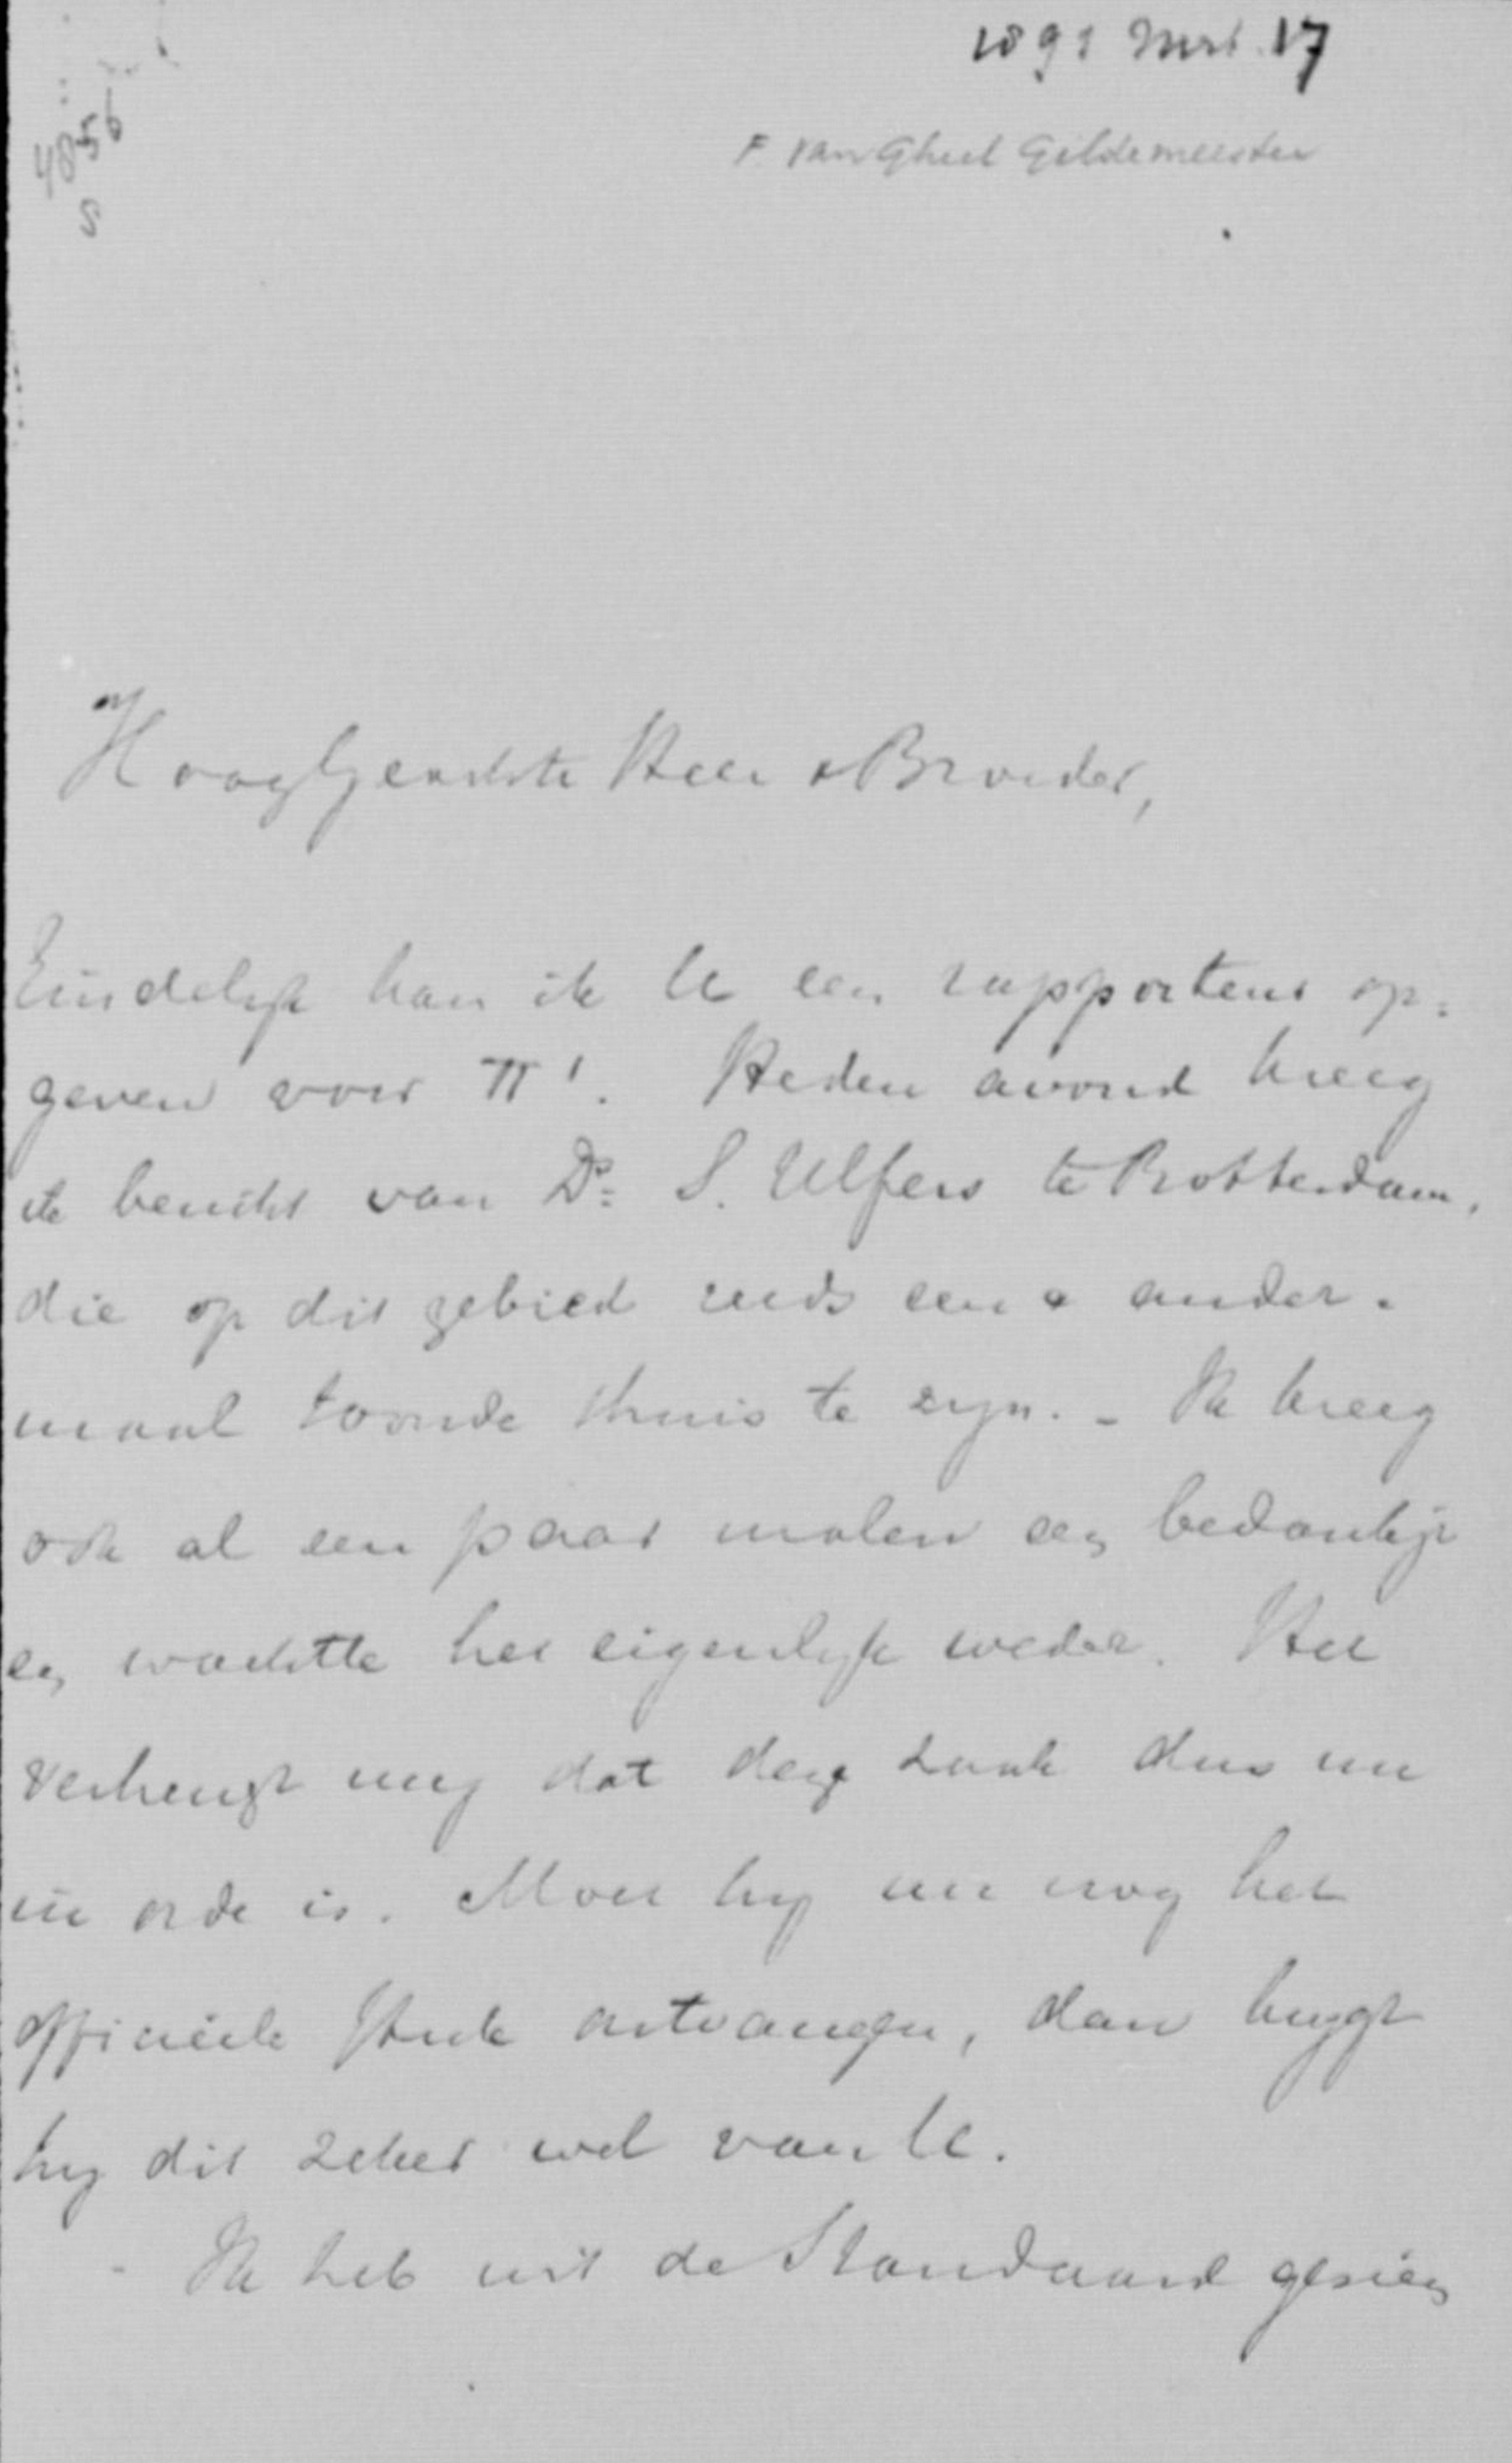 1891 Mrt. 17
F. van Gheel Gildemeester
4856
S
HoogGeachte Heer & Broeder,
Eindelijk kan ik U een rapporteur op-
geven voor II¹. Heden avond kreeg
ik bericht van Ds. S. Ulfers te Rotterdam,
die op dit gebied reeds een & ander-
maal toonde thuis te zijn. - Ik kreeg
ook al een paar malen een bedankje
en wachtte het eigenlijk weder. Het
verheugt mij dat deze zaak dus nu
in orde is. Moet hij nu nog het
officieele stuk ontvangen, dan krijgt
hij dit zeker wel van U.
- Ik heb uit de Standaard gezien